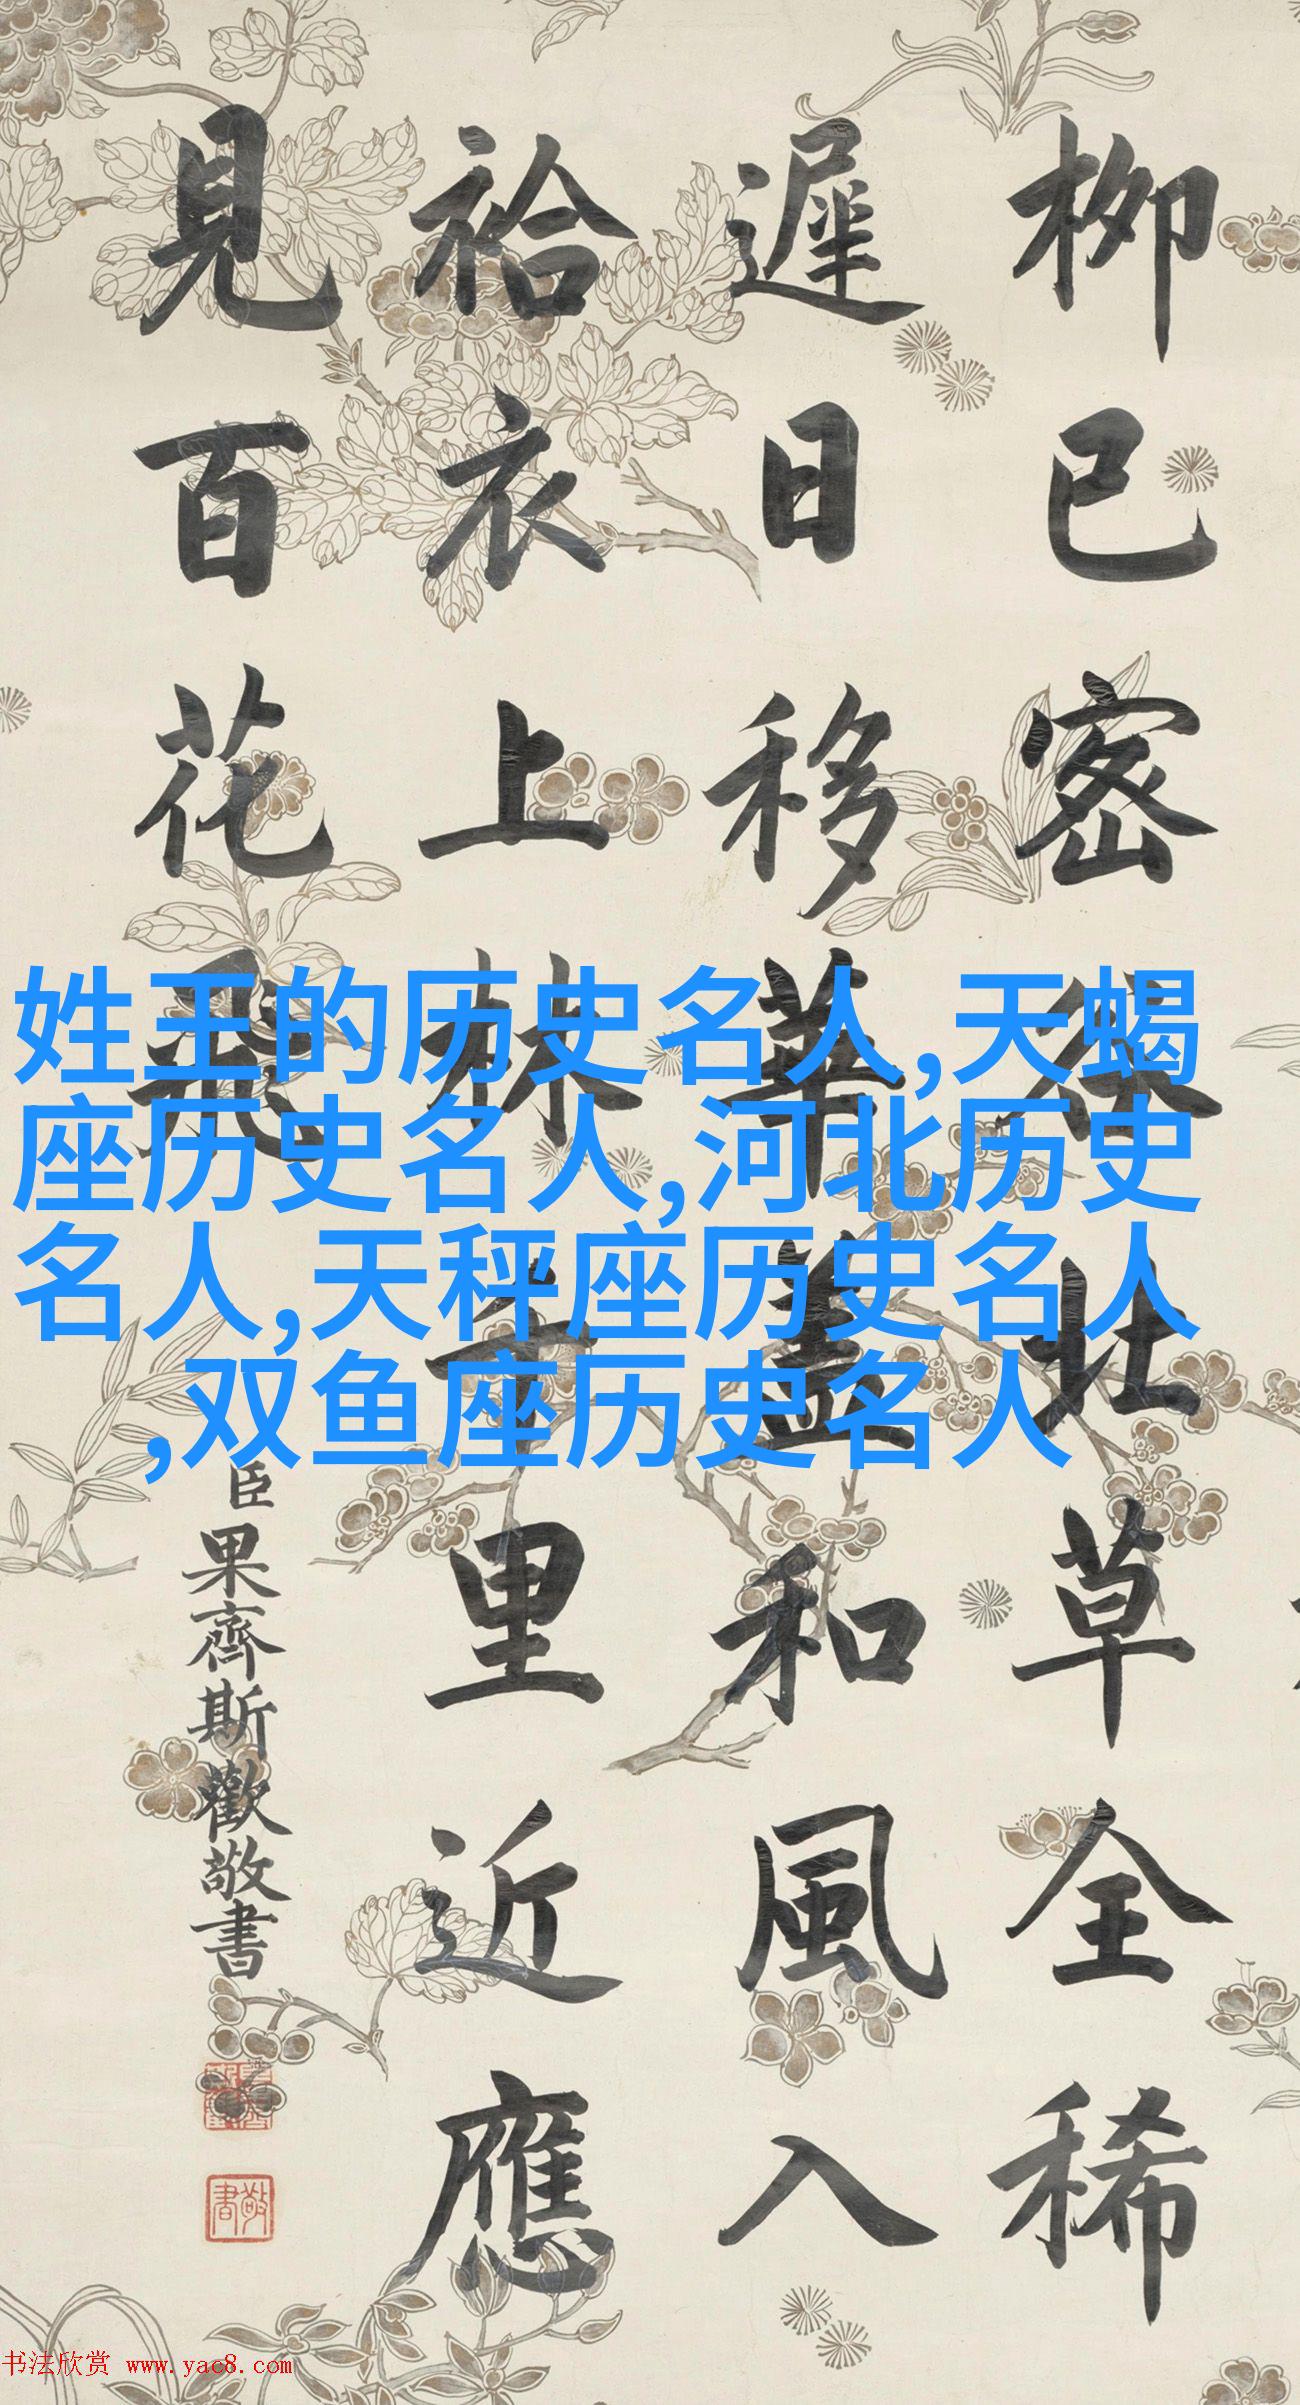 柳已密北草全稀
遲日移華蓋和風入
袷衣上林千里近應
見百花飛
臣果齊斯歡敬書
敬書
姓王的历史名人,天蝎
座历史名人,河北历史
名人,天秤座历史名人
,双鱼座历史名人
书法欣赏 www.yac8.com